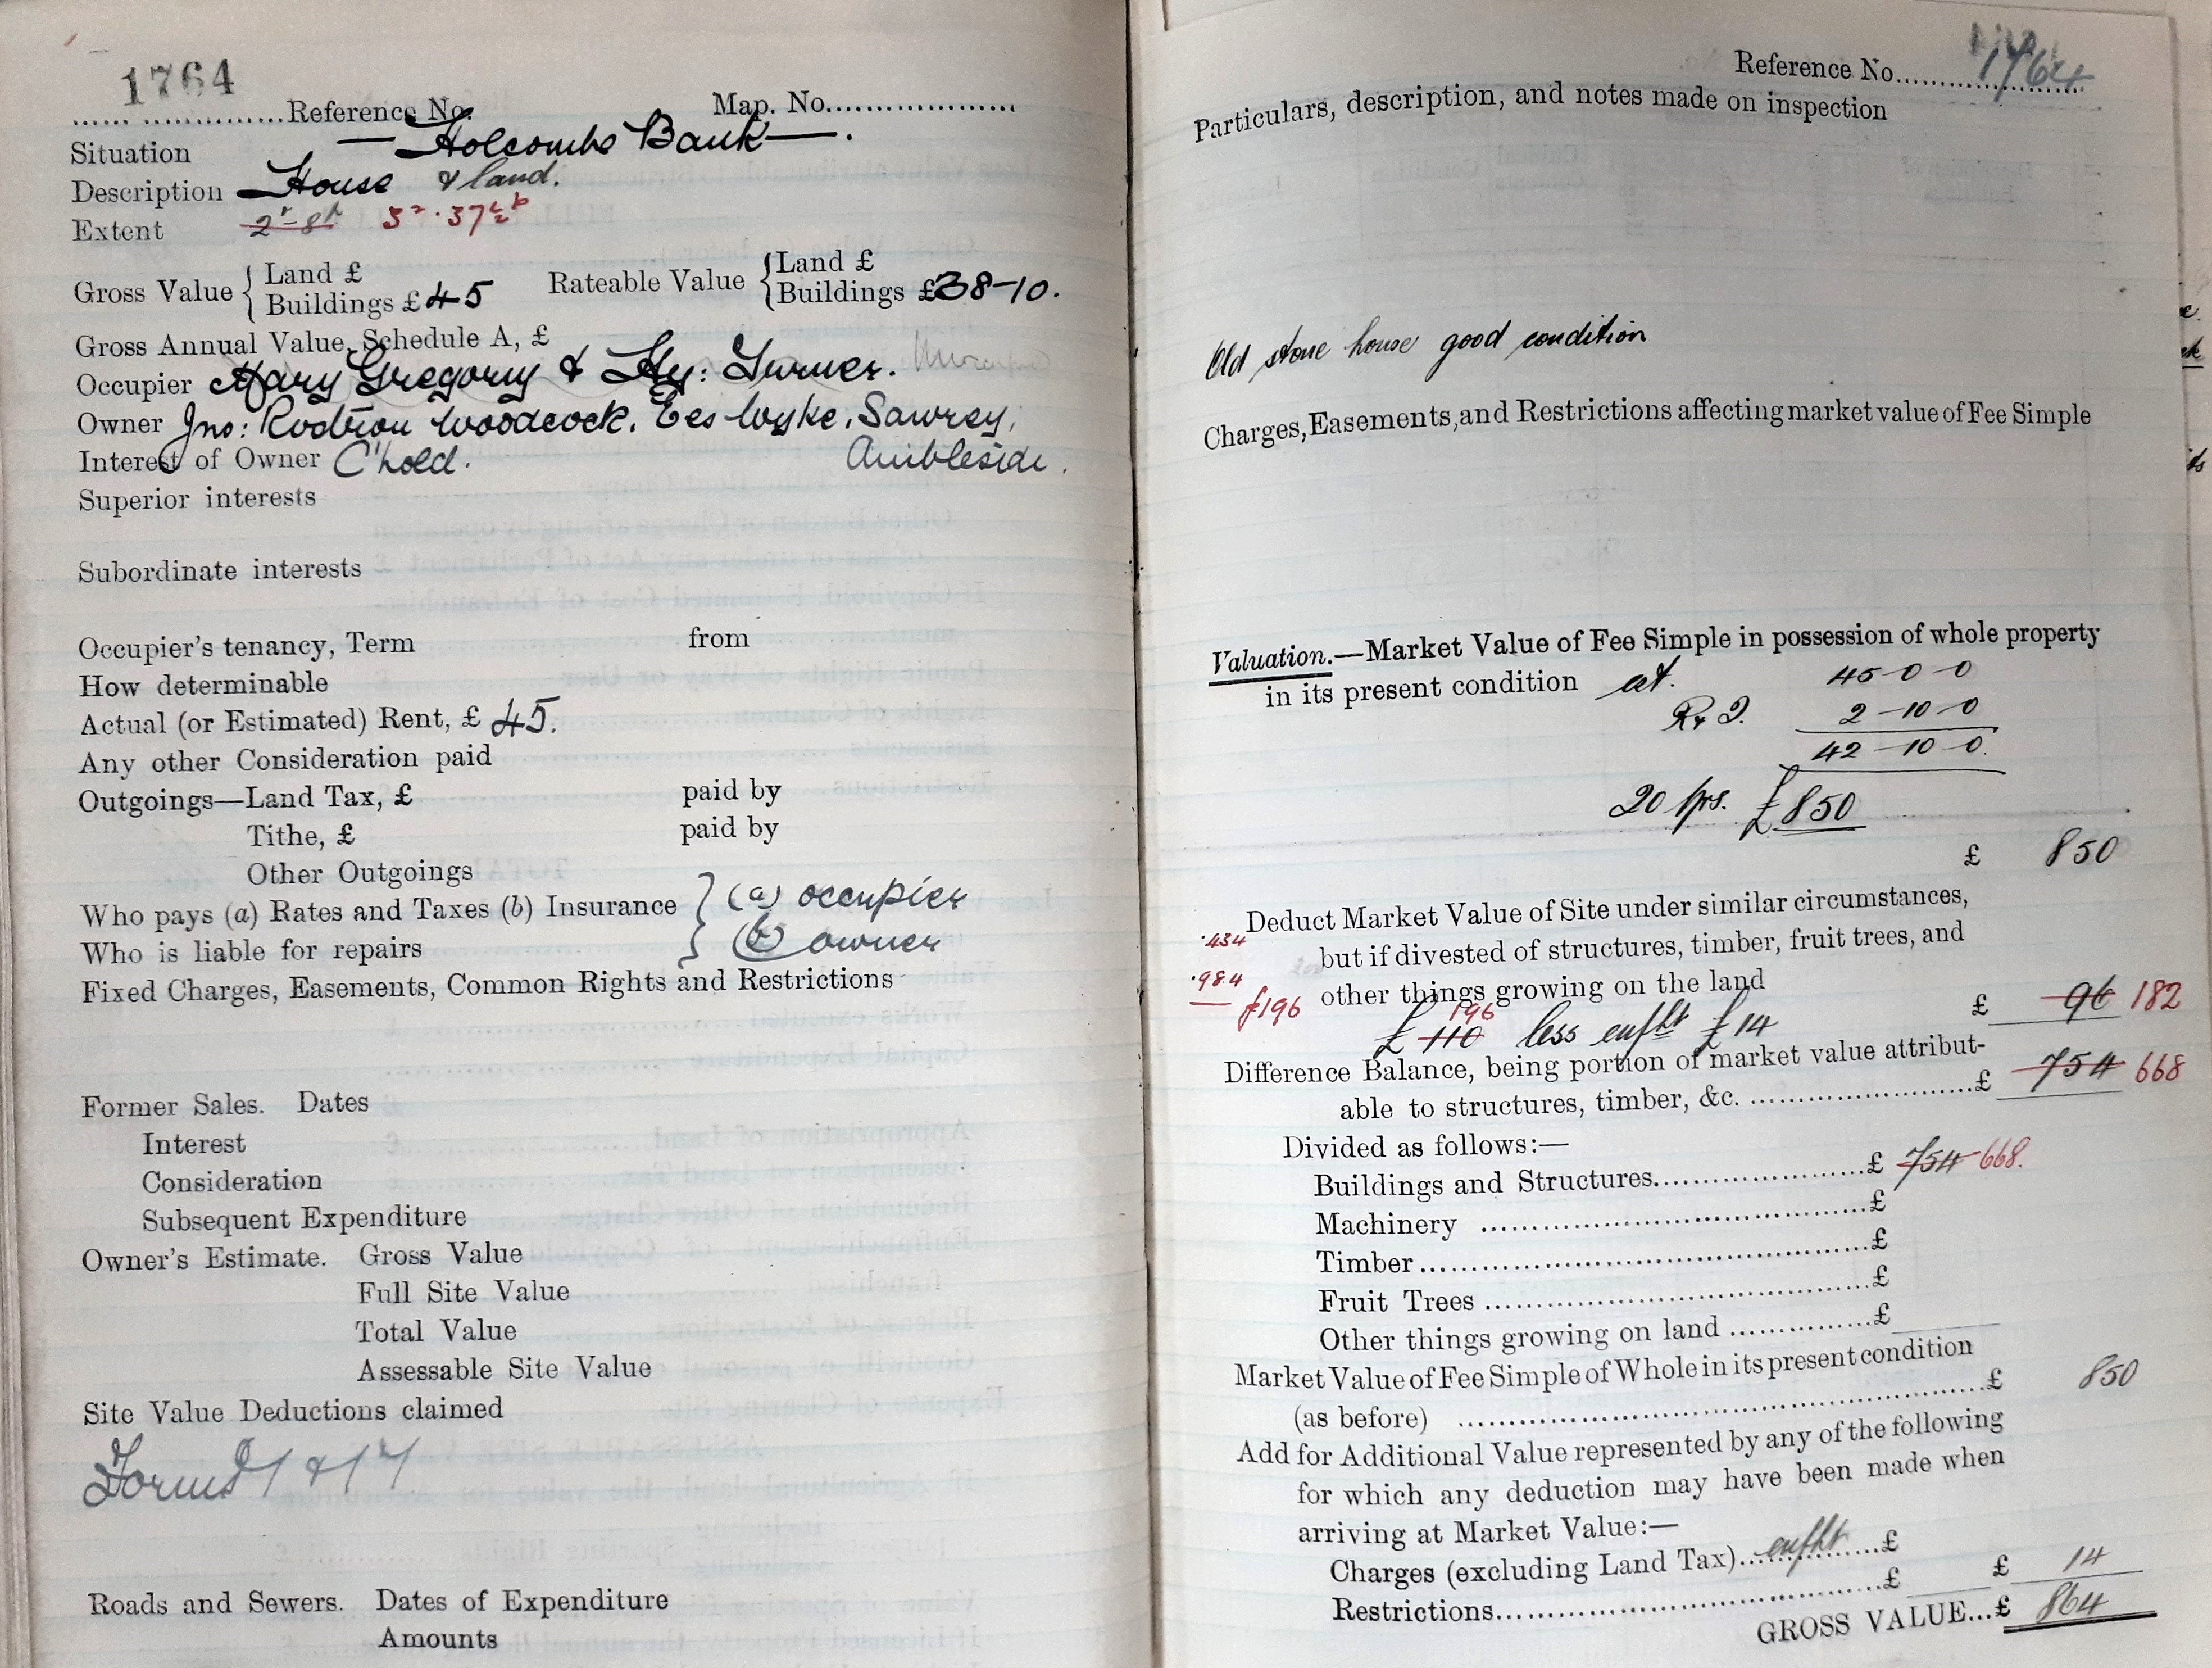 1764
Reference No. Map. No.
Situation — Holcombe Bank —.
Description House & land.
Extent 2r-8p 3r.37½p
Gross Value { Land £
Buildings £ 45
Rateable Value { Land £
Buildings £38-10.
Gross Annual Value, Schedule A, £
Occupier Mary Gregory & Hy: Turner.
Owner Jno: Woodcock. Ees Wyke, Sawrey,
Interest of Owner C'hold. Ambleside.
Superior interests
Subordinate interests
Occupier's tenancy, Term from
How determinable
Actual (or Estimated) Rent, £ 45.
Any other Consideration paid
Outgoings—Land Tax, £ paid by
Tithe, £ paid by
Other Outgoings
Who pays (a) Rates and Taxes (b) Insurance } (a) occupier
Who is liable for repairs (b) owner
Fixed Charges, Easements, Common Rights and Restrictions
Former Sales. Dates
Interest
Consideration
Subsequent Expenditure
Owner's Estimate. Gross Value
Full Site Value
Total Value
Assessable Site Value
Site Value Deductions claimed
Roads and Sewers. Dates of Expenditure
Amounts
Reference No. 1764
Particulars, description, and notes made on inspection
Old stone house good condition
Charges, Easements, and Restrictions affecting market value of Fee Simple
Valuation.—Market Value of Fee Simple in possession of whole property
in its present condition at. 45-0-0
2-10-0
42-10-0.
20 yrs. £850
£ 850
Deduct Market Value of Site under similar circumstances,
.434 but if divested of structures, timber, fruit trees, and
.984 other things growing on the land
£196 £ 96 182
196
£ 110 less enfht £14
Difference Balance, being portion of market value attribut-
able to structures, timber, &c. £ 754 668
Divided as follows:—
Buildings and Structures £ 754 668.
Machinery £
Timber £
Fruit Trees £
Other things growing on land £
Market Value of Fee Simple of Whole in its present condition
(as before) £ 850
Add for Additional Value represented by any of the following
for which any deduction may have been made when
arriving at Market Value:—
Charges (excluding Land Tax) enfht £
Restrictions £ £ 14
GROSS VALUE...£ 864